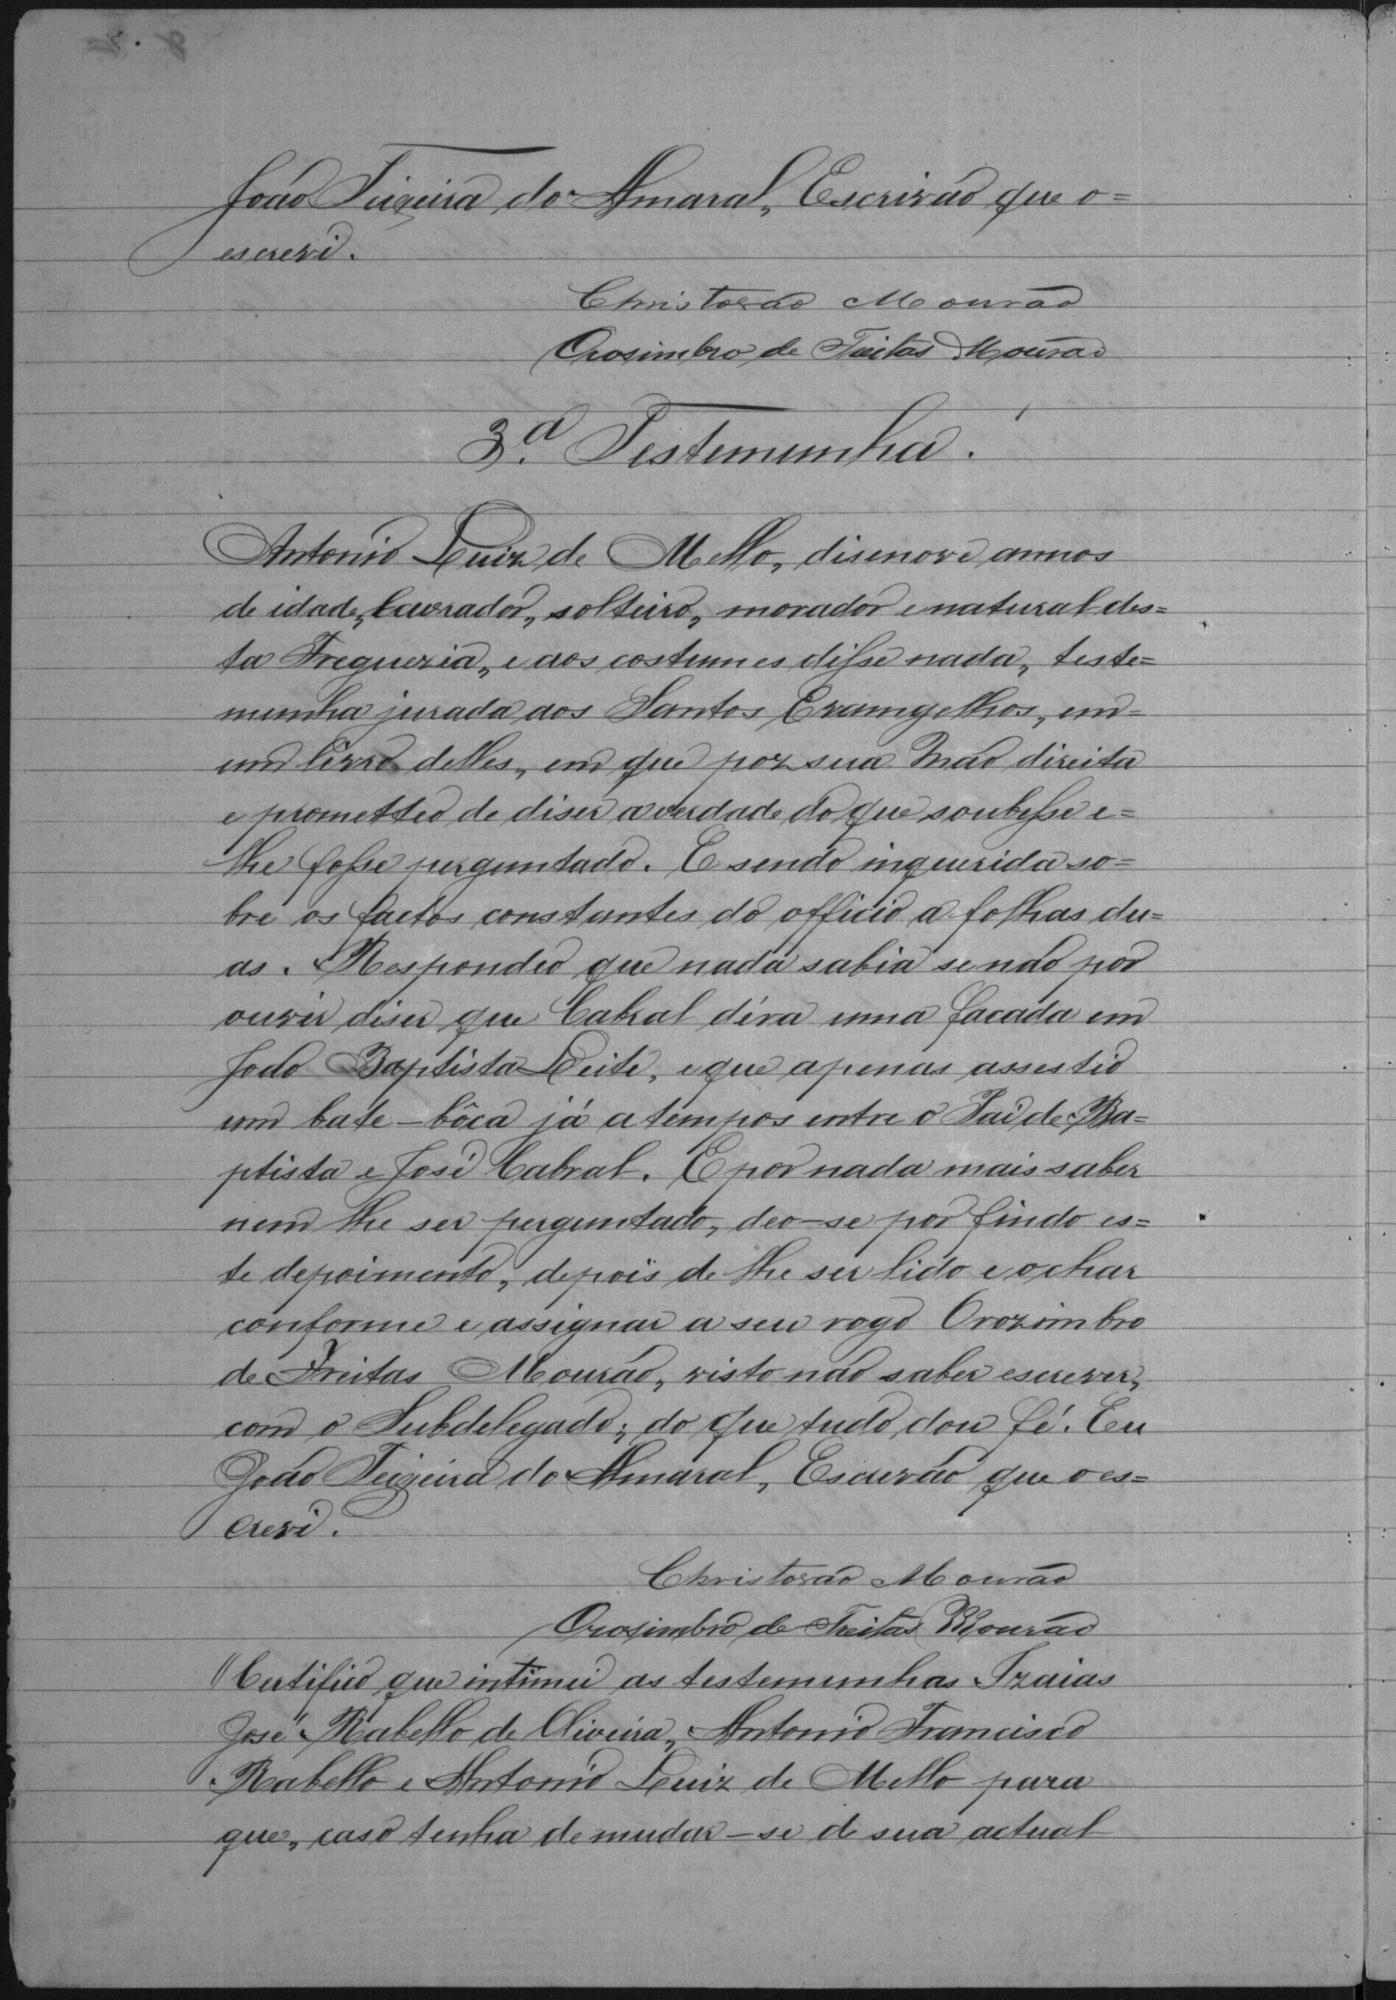 João Teixeira do Amaral, Escrivão que o=
escrevi.
Christovão Mourão
Orosimbro de Freitas Mourão
3.ª Testemunha.
Antonio Luiz de Mello, disenove annos
de idade, lavrador, solteiro, morador e natural des=
ta Freguezia, e aos costumes disse nada, teste=
munha jurada aos Santos Evamgelhos, em=
um livro delles, em que poz sua mão direita
e prometteo de diser a verdade do que soubesse e=
lhe fosse perguntado. E sendo inquerida so=
bre os factos constantes do officio a folhas du=
as. Respondeo que nada sabia se não por
ouvir diser que Cabral déra uma facada em
João Baptista Leite, e que apenas assestio
um bate-bôca já a tempos entre o Pai de Ba=
ptista e José Cabral. E por nada mais saber
nem lhe ser perguntado, deo-se por findo es=
te depoimento, depois de lhe ser lido e achar
conforme e assignar a seu rogo Orozimbro
de Freitas Mourão, visto não saber escrever,
com o Subdelegado; do que tudo dou fé. Eu
João Teixeira do Amaral, Escrivão que o es=
crevi.
Christovão Mourão
Orosimbro de Freitas Mourão
Certifico que intimei as testemunhas Izaias
José Rabello de Oliveira, Antonio Francisco
Rabello e Antonio Luiz de Mello para
que, caso tenha de mudar-se de sua actual